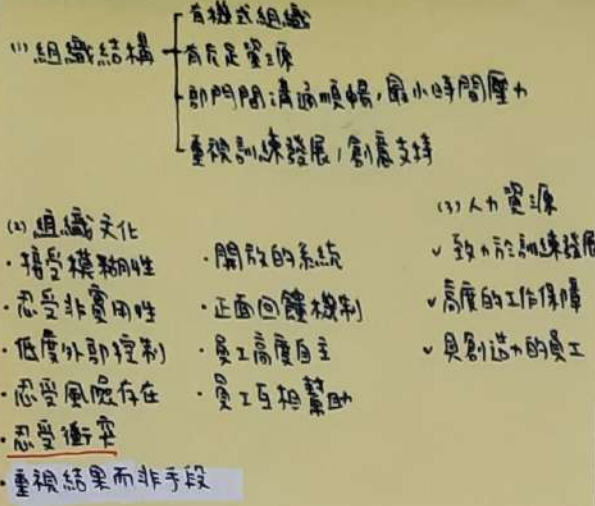 (1) 組織結構
有機式組織
有充足資源
部門間溝通順暢,最小時間壓力
重視訓練發展,創意支持
(2) 組織文化
・接受模糊性
・忍受非實用性
・低度外部控制
・忍受風險存在
・忍受衝突
・重視結果而非手段
・開放的系統
・正面回饋機制
・員工高度自主
・員工互相幫助
(3) 人力資源
✓ 致力於訓練發展
✓ 高度的工作保障
✓ 具創造力的員工